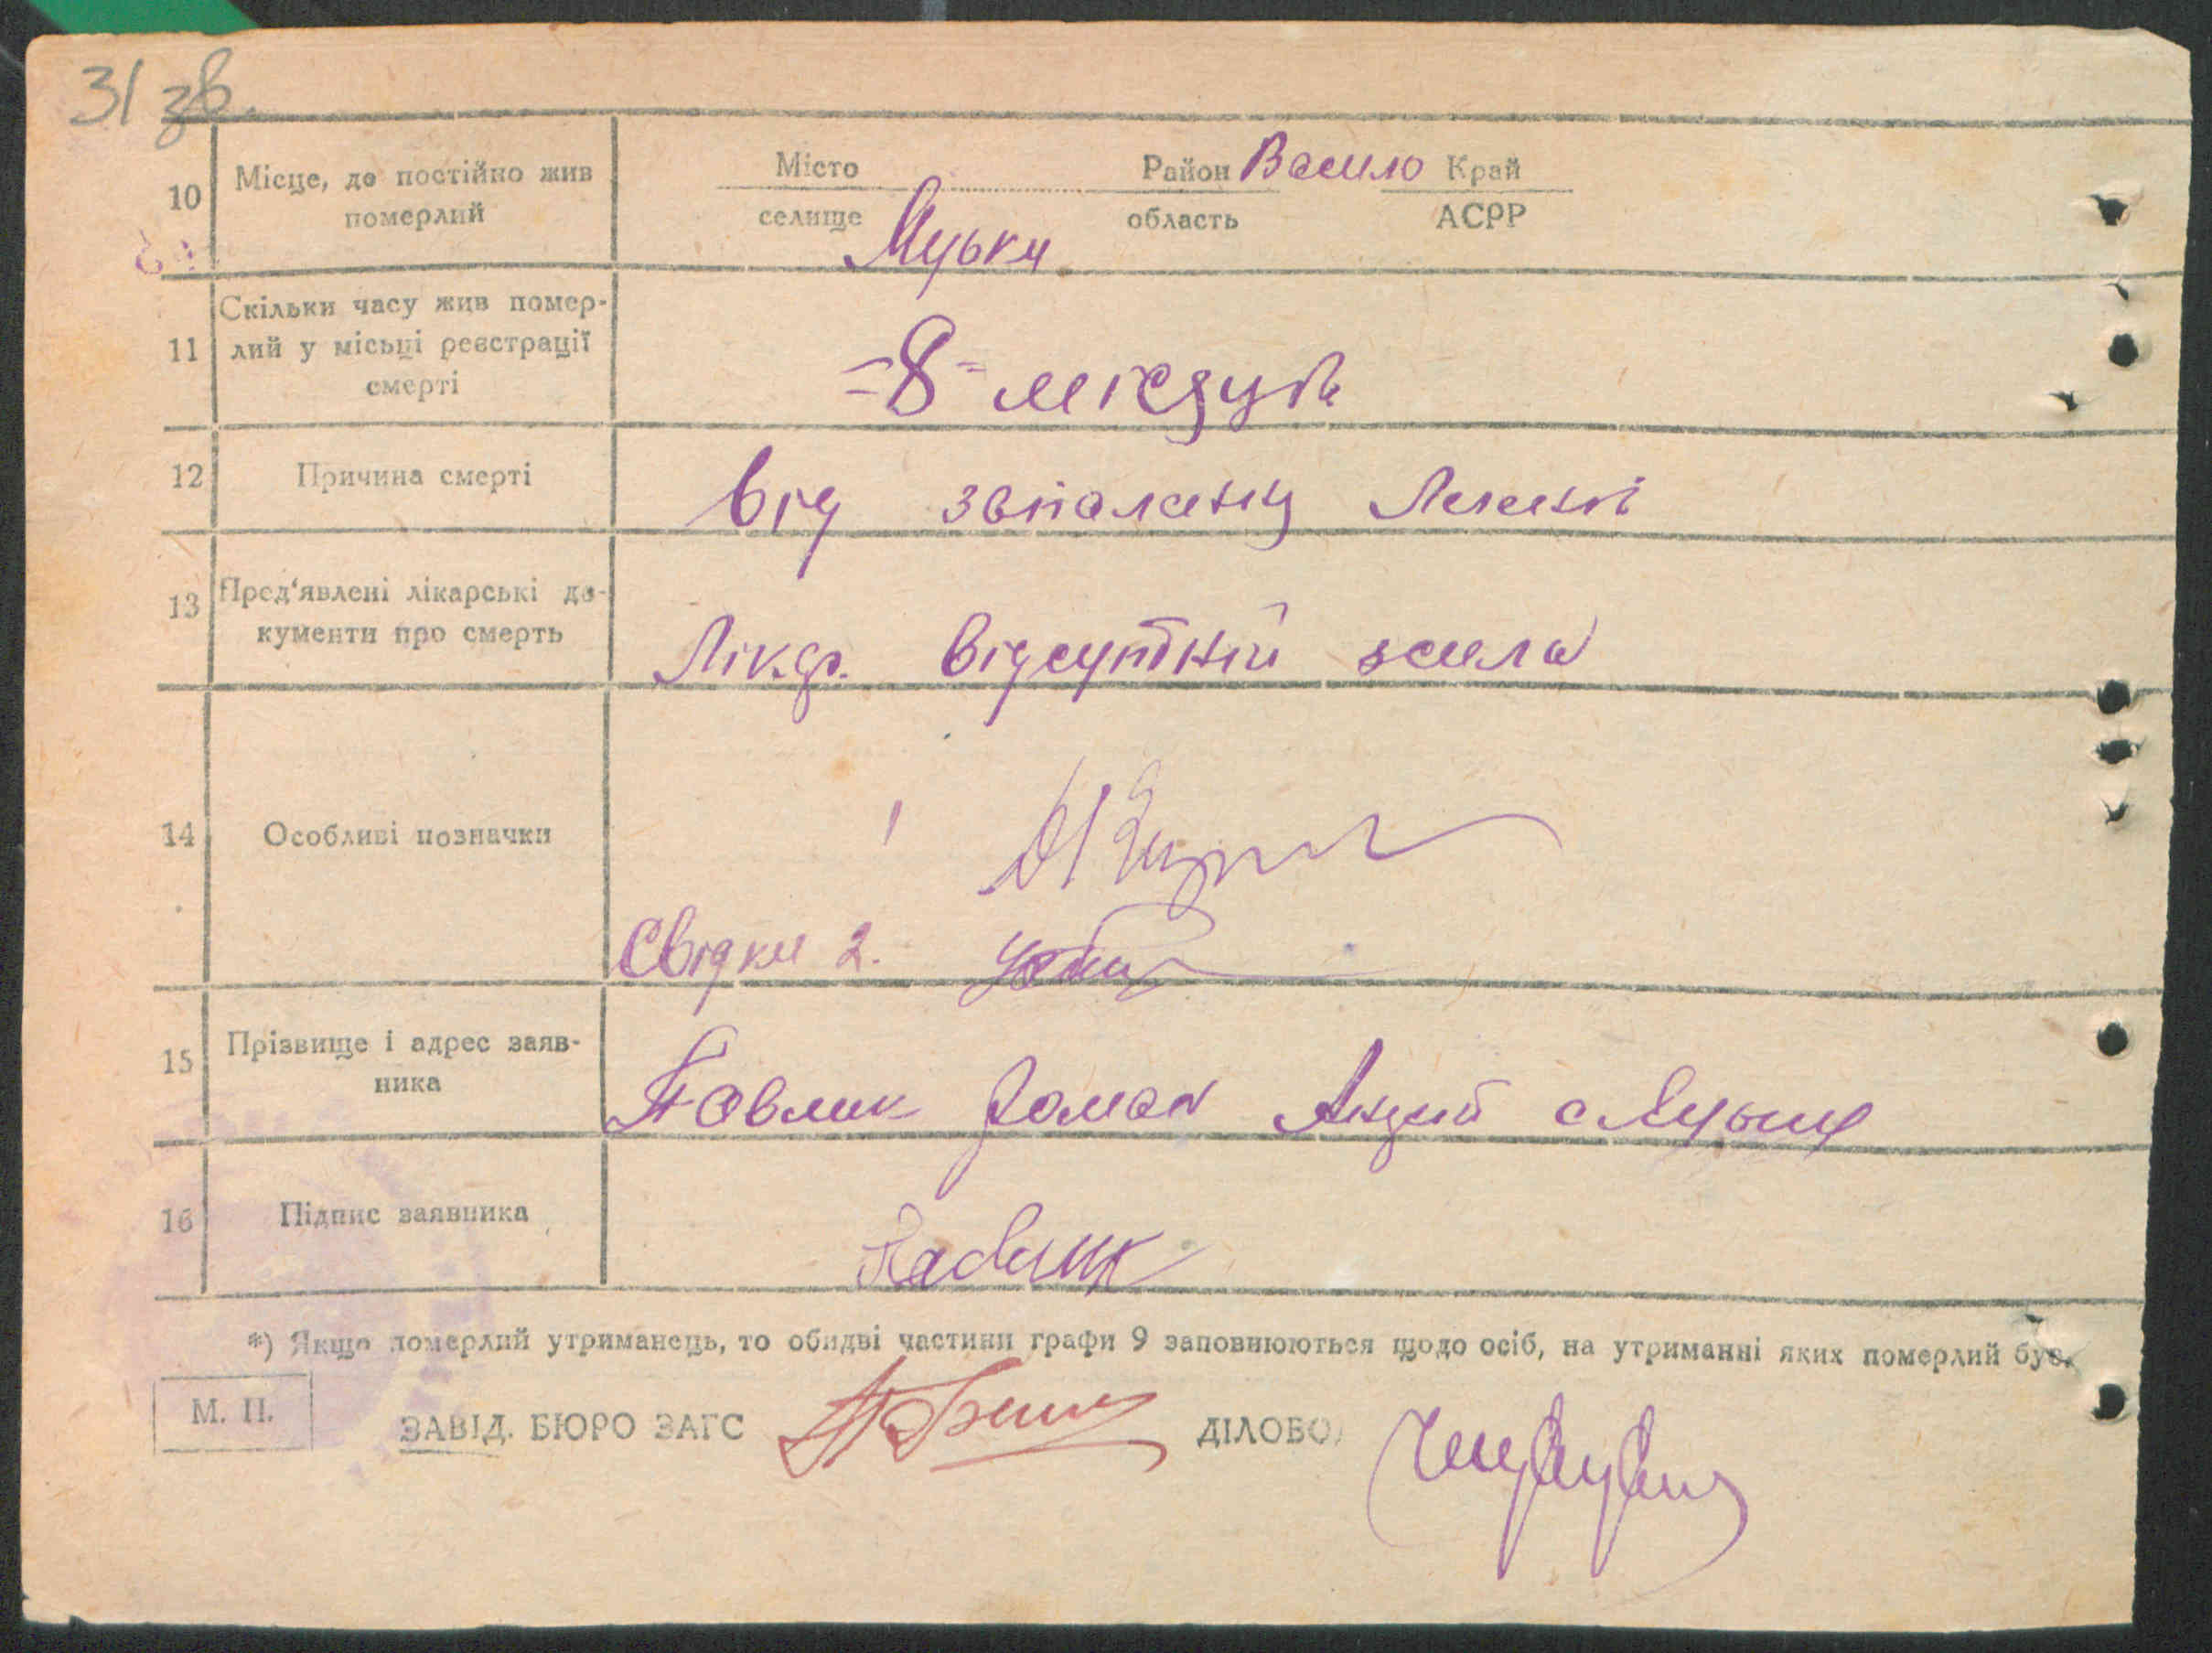 31 зв.
10 Місце, де постійно жив померлий
Місто Район Василю Край
селище Муьки область АСРР
11 Скільки часу жив помер-
лий у місьці реєстрації
смерті
=8= місяців
12 Причина смерті
від запаленн Легенів
13 Пред'явлені лікарські до-
кументи про смерть
Лікар. відсутній
14 Особливі позначки
Свідки 2.
15 Прізвище і адрес заяв-
ника
Павлик Роман
16 Підпис заявника
Павлик
*) Якщо померлий утриманець, то обидві частини графи 9 заповнюються щодо осіб, на утриманні яких померлий був.
М. П.
ЗАВІД. БЮРО ЗАГС ДІЛОВОД